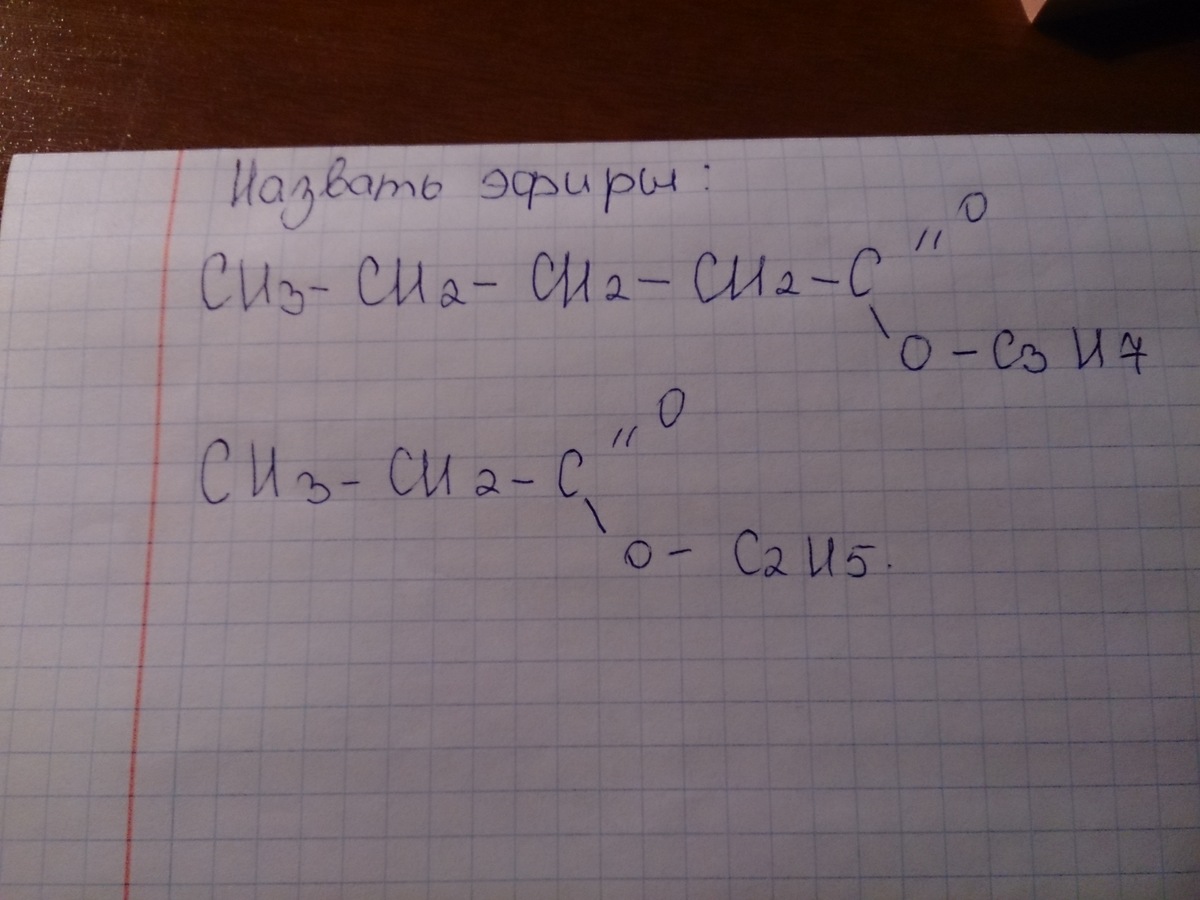 Назвать эфиры:
CH3 - CH2 - CH2 - CH2 - C // O
\ O - C3H7
CH3 - CH2 - C // O
\ O - C2H5.